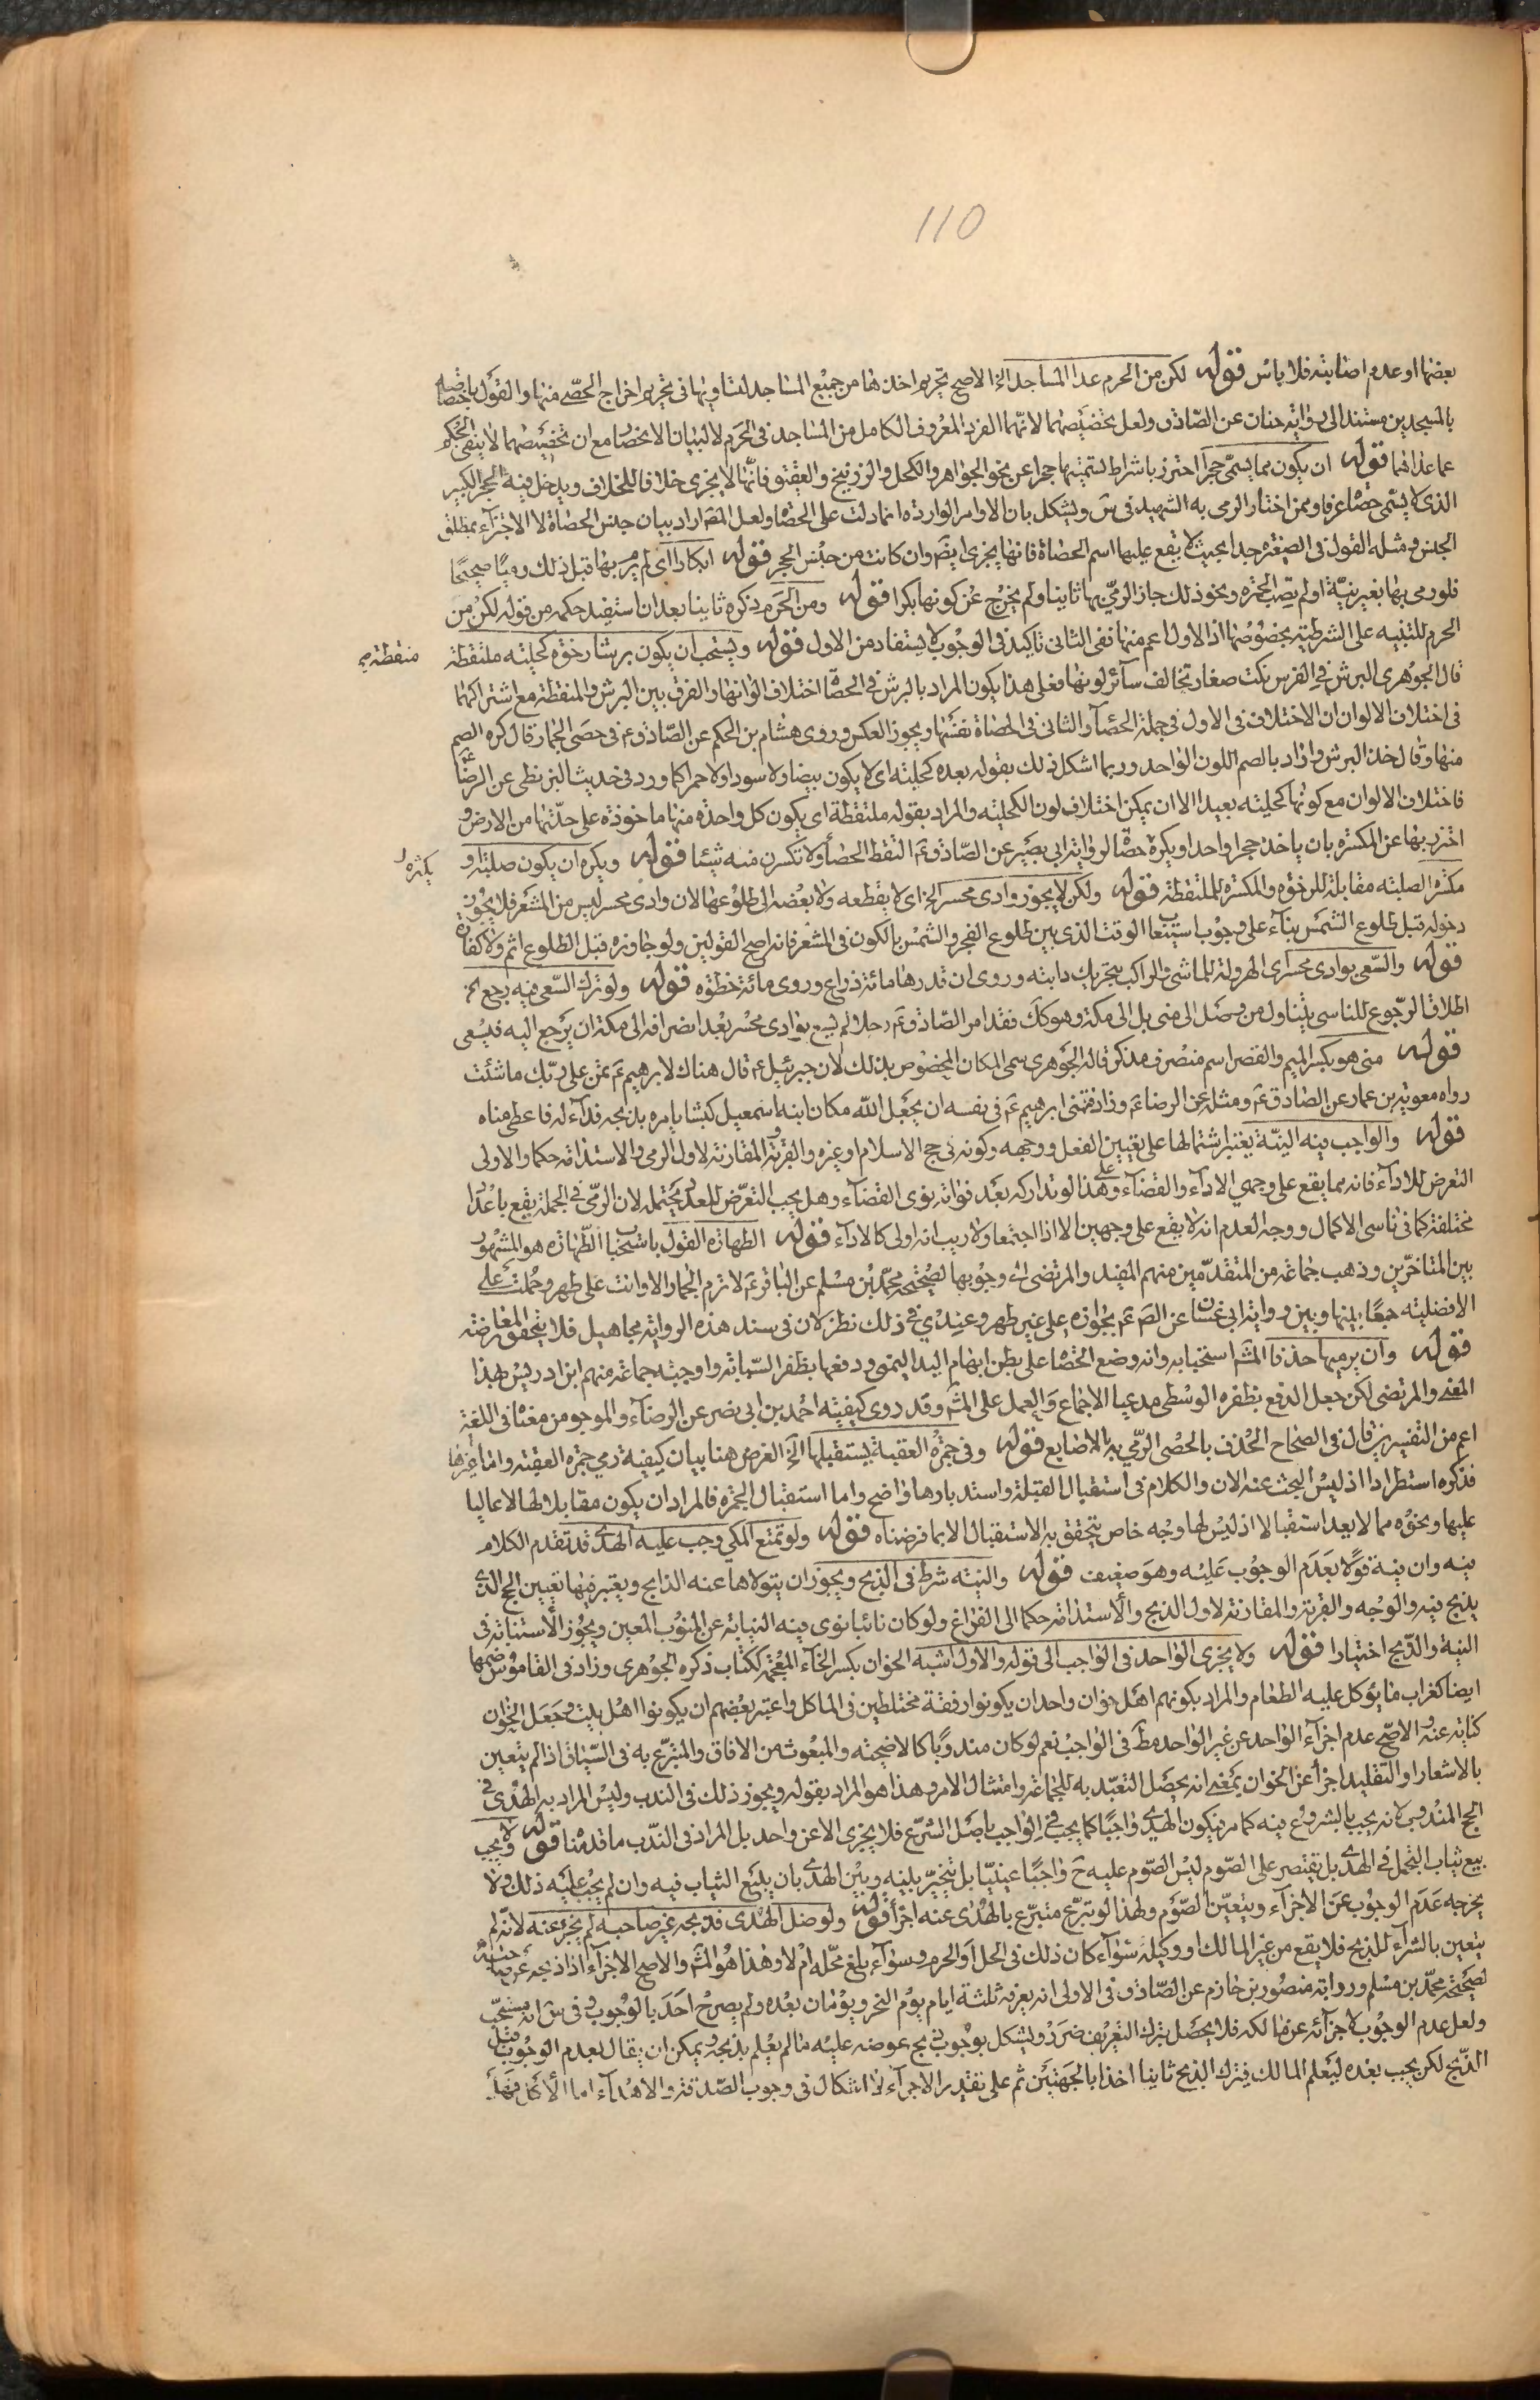 110
بعضها او عدم اصابته فلا باس قوله لكن من الحرم عدا المساجد الخ الاصح تحريم اخذها من جميع المساجد لتساويها في تحريم اخراج الحصى منها والقول باختصاصه
بالمسجدين مستند الى رواية حنان عن الصادق ولعل تخصيصهما لانهما الفرد المعروف الكامل من المساجد في الحرم لا لبيان الانحصار مع ان تخصيصهما لا ينفى الحكم
عما عداهما قوله ان يكون مما يسمى حجرا احترز باشراط تسميتها حجرا عن نحو الجواهر والكحل والزرنيخ والعقيق فانها لا يجزى خلافا للخلاف ويدخل فيه الحجر الكبير
الذى لا يسمى حصاة عرفا وممن اختار الرمى به الشهيد في س ويشكل بان الاوامر الواردة انما دلت على الحصاة ولعل المصـ اراد بيان جنس الحصاة لا الاجتزاء بمطلق
الجنس ومثله القول في الصغيرة جدا بحيث لا يقع عليها اسم الحصاة فانها يجزى ايضـ وان كانت من جنس الحجر قوله ابكارا اى لم يرم بها قبل ذلك رميا صحيحا
فلو رمى بها بغير نية او لم تصب الجمرة ونحو ذلك جاز الرمى بها ثانيا ولم يخرج عن كونها بكرا قوله ومن الحرم ذكره ثانيا بعد ان استفيد حكمه من قوله لكن من
الحرم للتنبيه على الشرطية بخصوصها اذ الاول اعم منها نفى الثانى تاكيد في الوجوب لا يستفاد من الاول قوله ويستحب ان يكون برشا رخوة كحلية ملتقطة
منقطة صح
قال الجوهرى البرش في الفرس نكت صغار تخالف سائر لونها فعلى هذا يكون المراد بالبرش في الحصا اختلاف الوانها والفرق بين البرش والمنقطة مع اشتراكهما
في اختلاف الالوان ان الاختلاف في الاول في جملة الحصا والثانى في الحصاة نفسها ويجوز العكس وروى هشام بن الحكم عن الصادق ع في حصى الجمار قال كره الصم
منها وقال خذ البرش واراد بالصم اللون الواحد وربما اشكل ذلك بقوله بعده كحلية اى لا يكون بيضا ولا سودا ولا حمرا كما ورد في حديث البزنطى عن الرضا ع
فاختلاف الالوان مع كونها كحلية بعيد الا ان يمكن اختلاف لون الكحلية والمراد بقوله ملتقطة اى يكون كل واحدة منها ماخوذة على حدتها من الارض و
احترز بها عن المكسرة بان ياخذ حجرا واحدا ويكسره حصا لرواية ابى بصير عن الصادق ع التقط الحصا ولا تكسرن منه شيئا قوله ويكره ان يكون صلبة او
مكسرة الصلبة مقابلة للرخوة والمكسرة للملتقطة قوله ولكن لا يجوز وادى محسر الخ اى لا يقطعه ولا بعضه الى طلوعها لان وادى محسر ليس من المشعر فلا يجوز
دخوله قبل طلوع الشمس بناء على وجوب استيعاب الوقت الذى بين طلوع الفجر والشمس بالكون في المشعر فانه اصح القولين ولو جاوزه قبل الطلوع اثم ولا كفارة
قوله والسعى بوادى محسر اى الهرولة للماشى والراكب بتحريك دابته وروى ان قدرها مائة ذراع وروى مائة خطوة قوله ولو ترك السعى فيه رجع الخ
اطلاق الرجوع للناسى يتناول من وصل الى منى بل الى مكة وهو كك فقد امر الصادق ع رجلا لم يسع بوادى محسر بعد انصرافه الى مكة ان يرجع اليه فيسعى
قوله منى هو بكسر الميم والقصر اسم منصرف مذكر قاله الجوهرى سمى المكان المخصوص بذلك لان جبرئيل ع قال هناك لابرهيم ع تمن على ربك ما شئت
رواه معوية بن عمار عن الصادق ع ومثله عن الرضا ع وزاد فتمنى ابرهيم ع في نفسه ان يجعل الله مكان ابنه اسمعيل كبشا يامره بذبحه فداء له فاعطى مناه
قوله والواجب فيه النية يعتبر اشتمالها على تعيين الفعل ووجهه وكونه في حج الاسلام او غيره والقربة والمقارنة لاول الرمى والاستدامة حكما والاولى
التعرض للاداء فانه مما يقع على وجهى الاداء والقضاء وعلى هذا لو تداركه بعد فواته نوى القضاء وهل يجب التعرض للعدد يحتمله لان الرمى في الجملة يقع باعداد
مختلفة كما في ناسى الاكمال ووجه العدم انه لا يقع على وجهين الا اذا اجتمعا ولا ريب انه اولى كالاداء قوله الطهارة القول باستحباب الطهارة هو المشهور
بين المتاخرين وذهب جماعة من المتقدمين منهم المفيد والمرتضى الى وجوبها لصحيحة محمد بن مسلم عن الباقر ع لا ترم الجمار الا وانت على طهر وحملت على
الافضلية جمعا بينها وبين رواية ابى غسان عن الصـ ع بجوازه على غير طهر وعندى في ذلك نظر لان في سند هذه الرواية مجاهيل فلا يتحقق المعارضة
قوله وان يرميها حذفا المشـ استحبابه وانه وضع الحصا على بطن ابهام اليد اليمنى ودفعها بظفر السبابة واوجبه جماعة منهم ابن ادريس بهذا
المعنى والمرتضى لكن جعل الدفع بظفر الوسطى مدعيا الاجماع والعمل على المشـ وقد روى كيفيته احمد بن ابى نصر عن الرضا ع والموجود من معناه في اللغة
اعم من التفسيرين قال في الصحاح الحذف بالحصى الرمى به بالاصابع قوله وفى جمرة العقبة يستقبلها الخ الغرض هنا بيان كيفية رمى جمرة العقبة واما غيرها
فذكره استطرادا اذ ليس البحث عنه الان والكلام في استقبال القبلة واستدبارها واضح واما استقبال الجمرة فالمراد ان يكون مقابلا لها لا عاليا
عليها ونحوه مما لا يعد استقبالا اذ ليس لها وجه خاص يتحقق به الاستقبال الا بما فرضناه قوله ولو تمتع المكى وجب عليه الهدى قد تقدم الكلام
فيه وان فيه قولا بعدم الوجوب عليه وهو ضعيف قوله والنية شرط في الذبح ويجوز ان يتولاها عنه الذابح ويعتبر فيها تعيين الحج الذى
يذبح فيه والوجه والقربة والمقارنة لاول الذبح والاستدامة حكما الى الفراغ ولو كان نائبا نوى فيه النيابة عن المنوب المعين ويجوز الاستنابة في
النية والذبح اختيارا قوله ولا يجزى الواحد في الواجب الى قوله والاول اشبه الخوان بكسر الخاء المعجمة ككتاب ذكره الجوهرى وزاد في القاموس ضمها
ايضا كغراب ما يؤكل عليه الطعام والمراد بكونهم اهل خوان واحد ان يكونوا رفقة مختلطين في الماكل واعتبر بعضهم ان يكونوا اهل بيت وجعل الخوان
كناية عنه والاصح عدم اجزاء الواحد عن غير الواحد مطـ في الواجب نعم لو كان مندوبا كالاضحية والمبعوث من الافاق والمتبرع به في السياق اذا لم يتعين
بالاشعار او التقليد اجزا عن الخوان بمعنى انه يحصل التعبد به للجماعة وامتثال الامر وهذا هو المراد بقوله ويجوز ذلك في الندب وليس المراد به الهدى في
الحج المندوب لانه يجب بالشروع فيه كما مر فيكون الهدى واجبا كما يجب في الواجب باصل الشرع فلا يجزى الا عن واحد بل المراد في الندب ما قدمنا قوله ولا يجب
بيع ثياب التجمل في الهدى بل يقتصر على الصوم ليس الصوم عليه ح واجبا عينيا بل يتخير بينه وبين الهدى بان يبيع الثياب فيه وان لم يجب عليه ذلك ولا
يخرجه عدم الوجوب عن الاجزاء ويتعين الصوم ولهذا لو تبرع متبرع بالهدى عنه اجزأ قوله ولو ضل الهدى فذبحه غير صاحبه لم يجز عنه لانه لم
يتعين بالشراء للذبح فلا يقع من غير المالك او وكيله سواء كان ذلك في الحل او الحرم وسواء بلغ محله ام لا وهذا هو المشـ والاصح الاجزاء اذا ذبحه عن صاحبه
لصحيحة محمد بن مسلم ورواية منصور بن حازم عن الصادق ع في الاولى انه يعرفه ثلثة ايام يوم النحر ويومان بعده ولم يصرح احد بالوجوب وفى س انه مستحب
ولعل عدم الوجوب لاجزائه عن مالكه فلا يحصل بترك التعريف ضرر ويشكل بوجوب ذبح عوضه عليه ما لم يعلم بذبحه ويمكن ان يقال بعدم الوجوب قبل
الذبح لكن يجب بعده ليعلم المالك فيترك الذبح ثانيا اخذا بالجهتين ثم على تقدير الاجزاء لا اشكال في وجوب الصدقة والاهداء اما الاكل